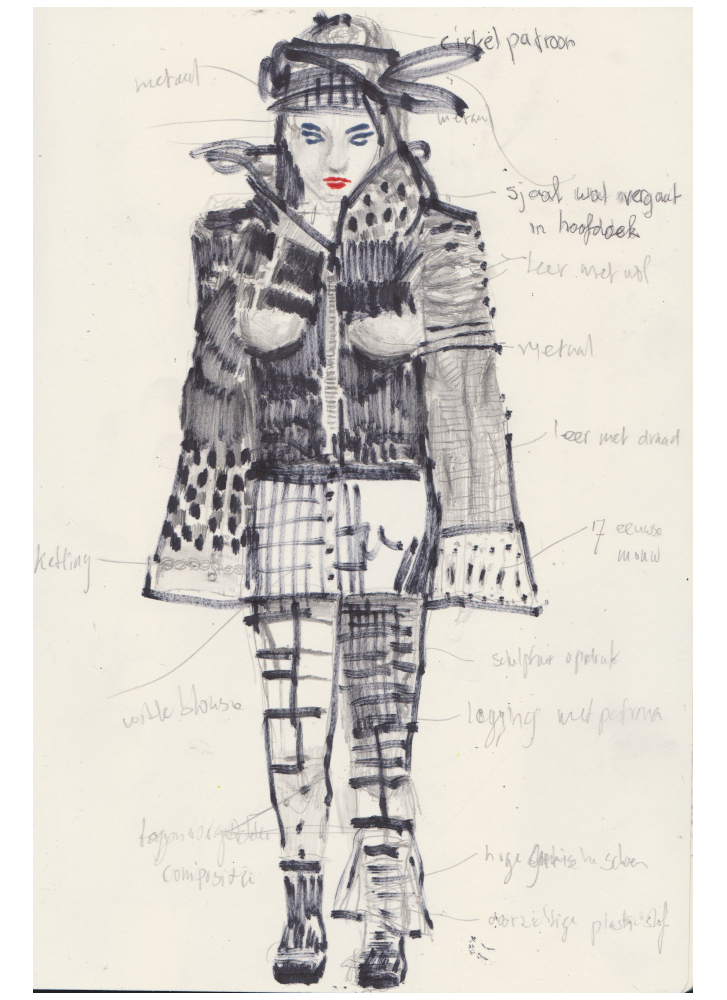 cirkelpatroon
metaal
metaal
sjaal wat overgaat
in hoofddoek
Leer met wol
metaal
leer met draad
17 eeuwse
mouw
ketting
opdruk
witte blouse
legging met patroon
compositie
hoge schoen
doorzichtige plastic stof